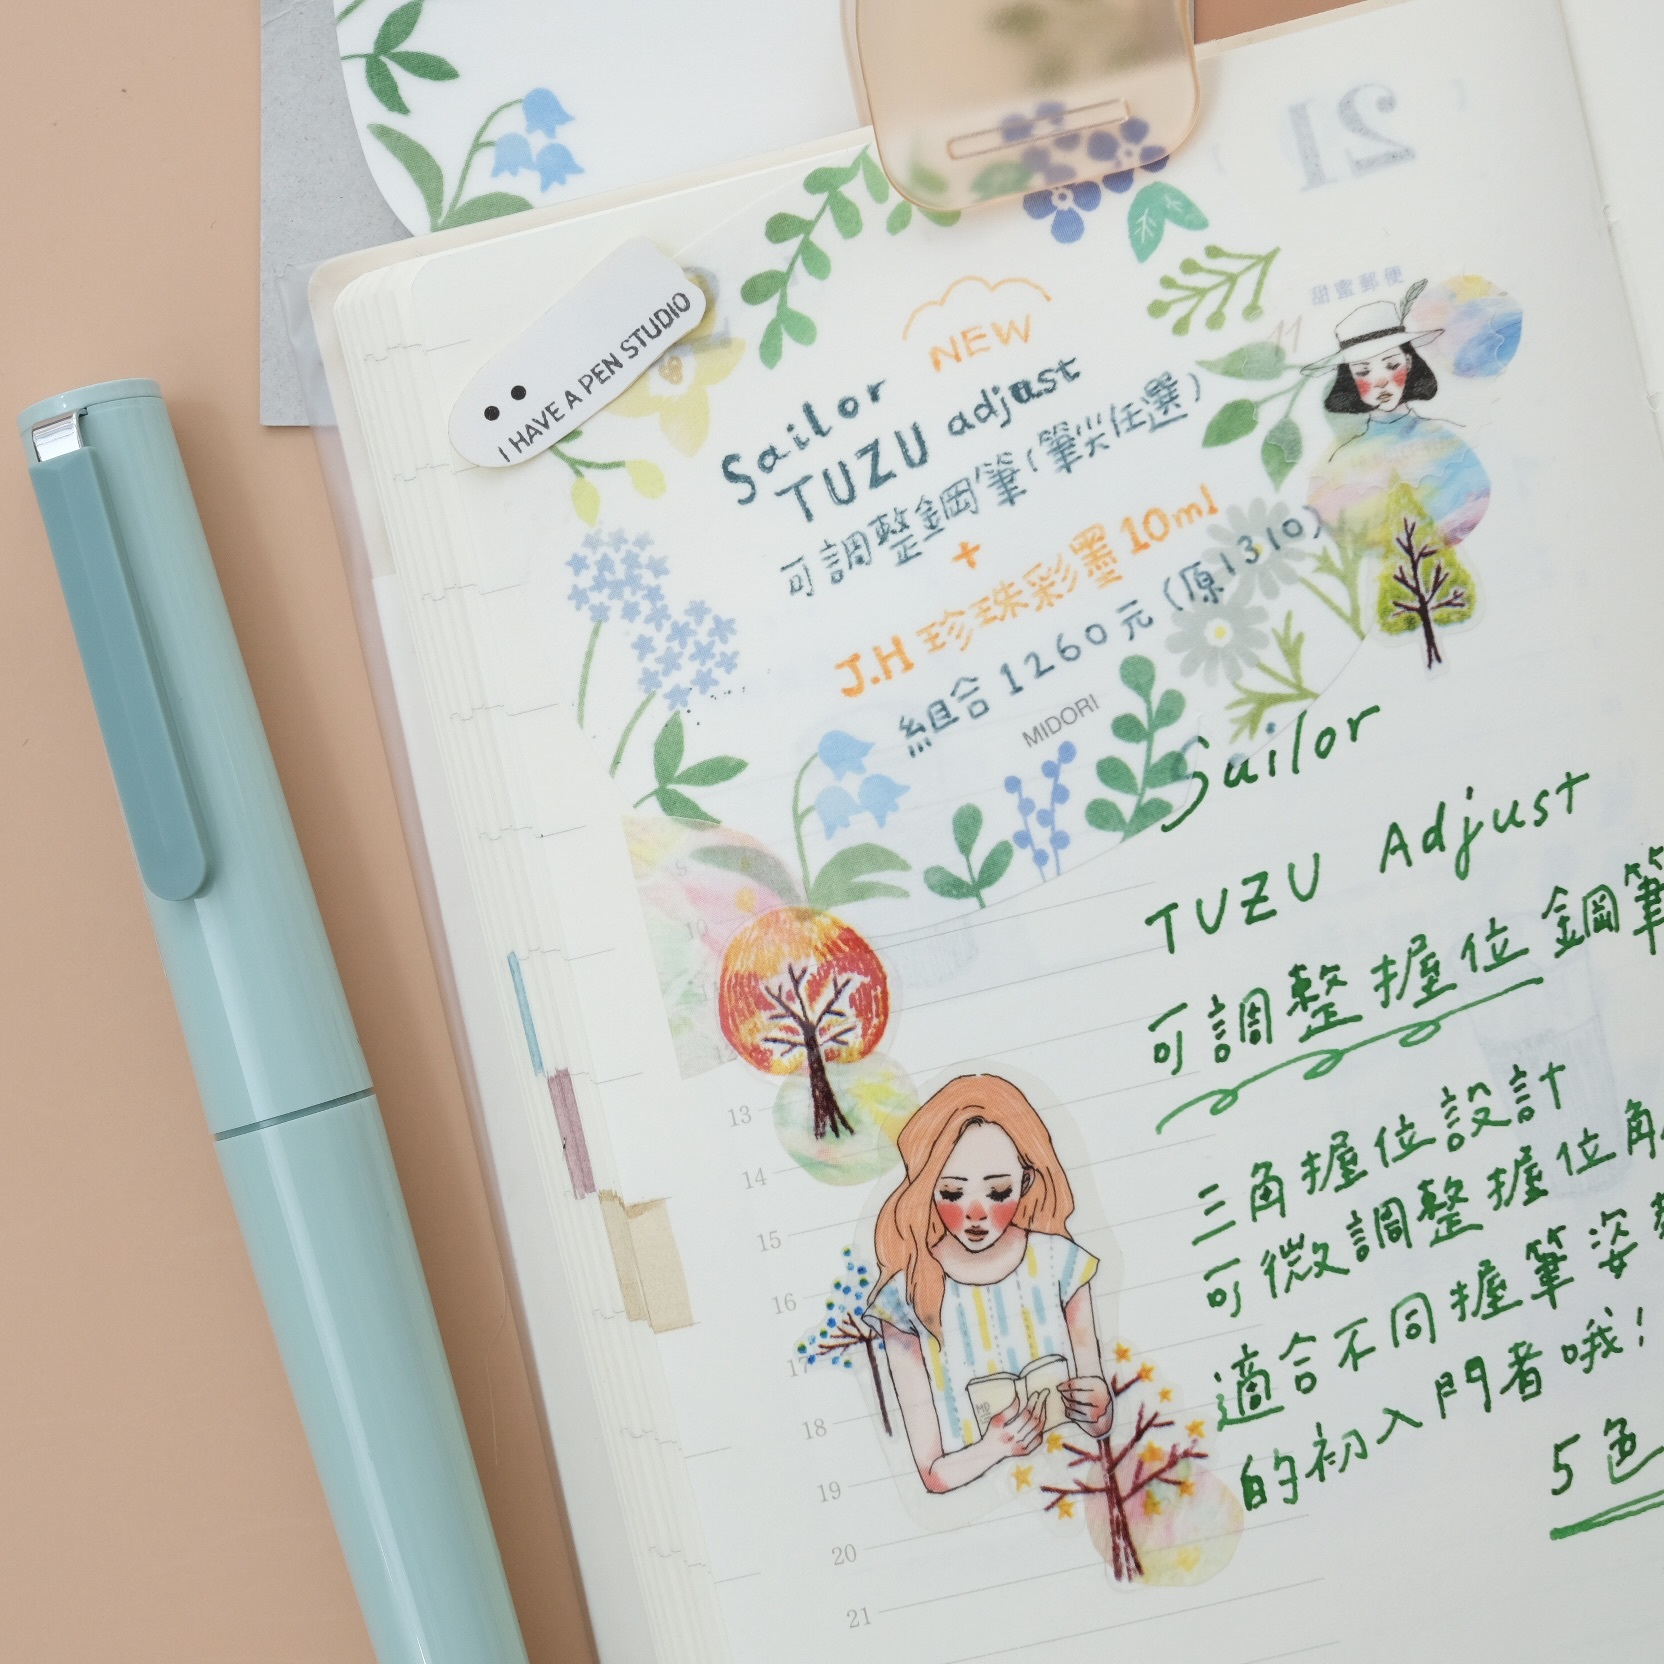 21
I HAVE A PEN STUDIO
NEW
Sailor
TUZU adjust
可調整鋼筆(筆尖任選)
+
J.H 珍珠彩墨 10ml
組合 1260 元 (原1310)
MIDORI
甜蜜郵便
11
Sailor
TUZU Adjust
可調整握位鋼筆
三角握位設計
可微調整握位角
適合不同握筆姿
的初入門者哦!
5色
9
10
11
12
13
14
15
16
17
18
19
20
21
MD